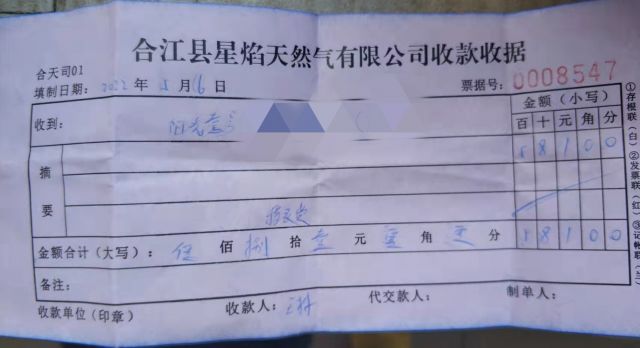 合江县星焰天然气有限公司收款收据
合天司01
填制日期: 2022 年 5 月 16 日 票据号: 0008547
收到: 阳光壹号 金额(小写)
百 十 元 角 分
摘要 5 8 1 0 0
金额合计(大写): 伍 佰 捌 拾 壹 元 零 角 零 分 5 8 1 0 0
备注:
收款单位(印章) 收款人: 代交款人: 制单人:
①存根联(白)②发票联(红)③记帐联(兰)